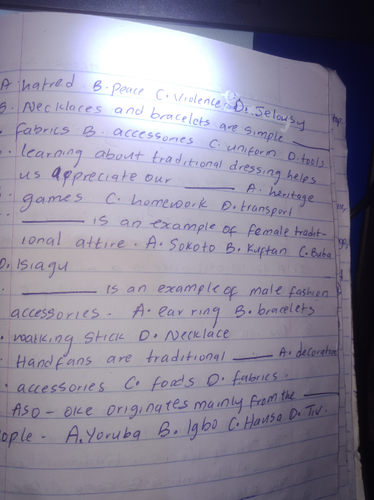 A hatred B. peace C. Violence D. Jelousy
Necklaces and bracelets are simple ____
fabrics B. accessories C. uniform D. tools
learning about traditional dressing helps
us appreciate our ____ A. heritage
games C. homework D. transport
____ is an example of female tradit-
ional attire. A. Sokoto B. Kuftan C. Buba
D. Isiagu
____ is an example of male fashion
accessories. A. ear ring B. bracelets
walking stick D. Necklace
Handfans are traditional ____ A. decoration
accessories C. foods D. fabrics.
Aso-oke originates mainly from the ____
ople. A. Yoruba B. Igbo C. Hausa D. Tiv.